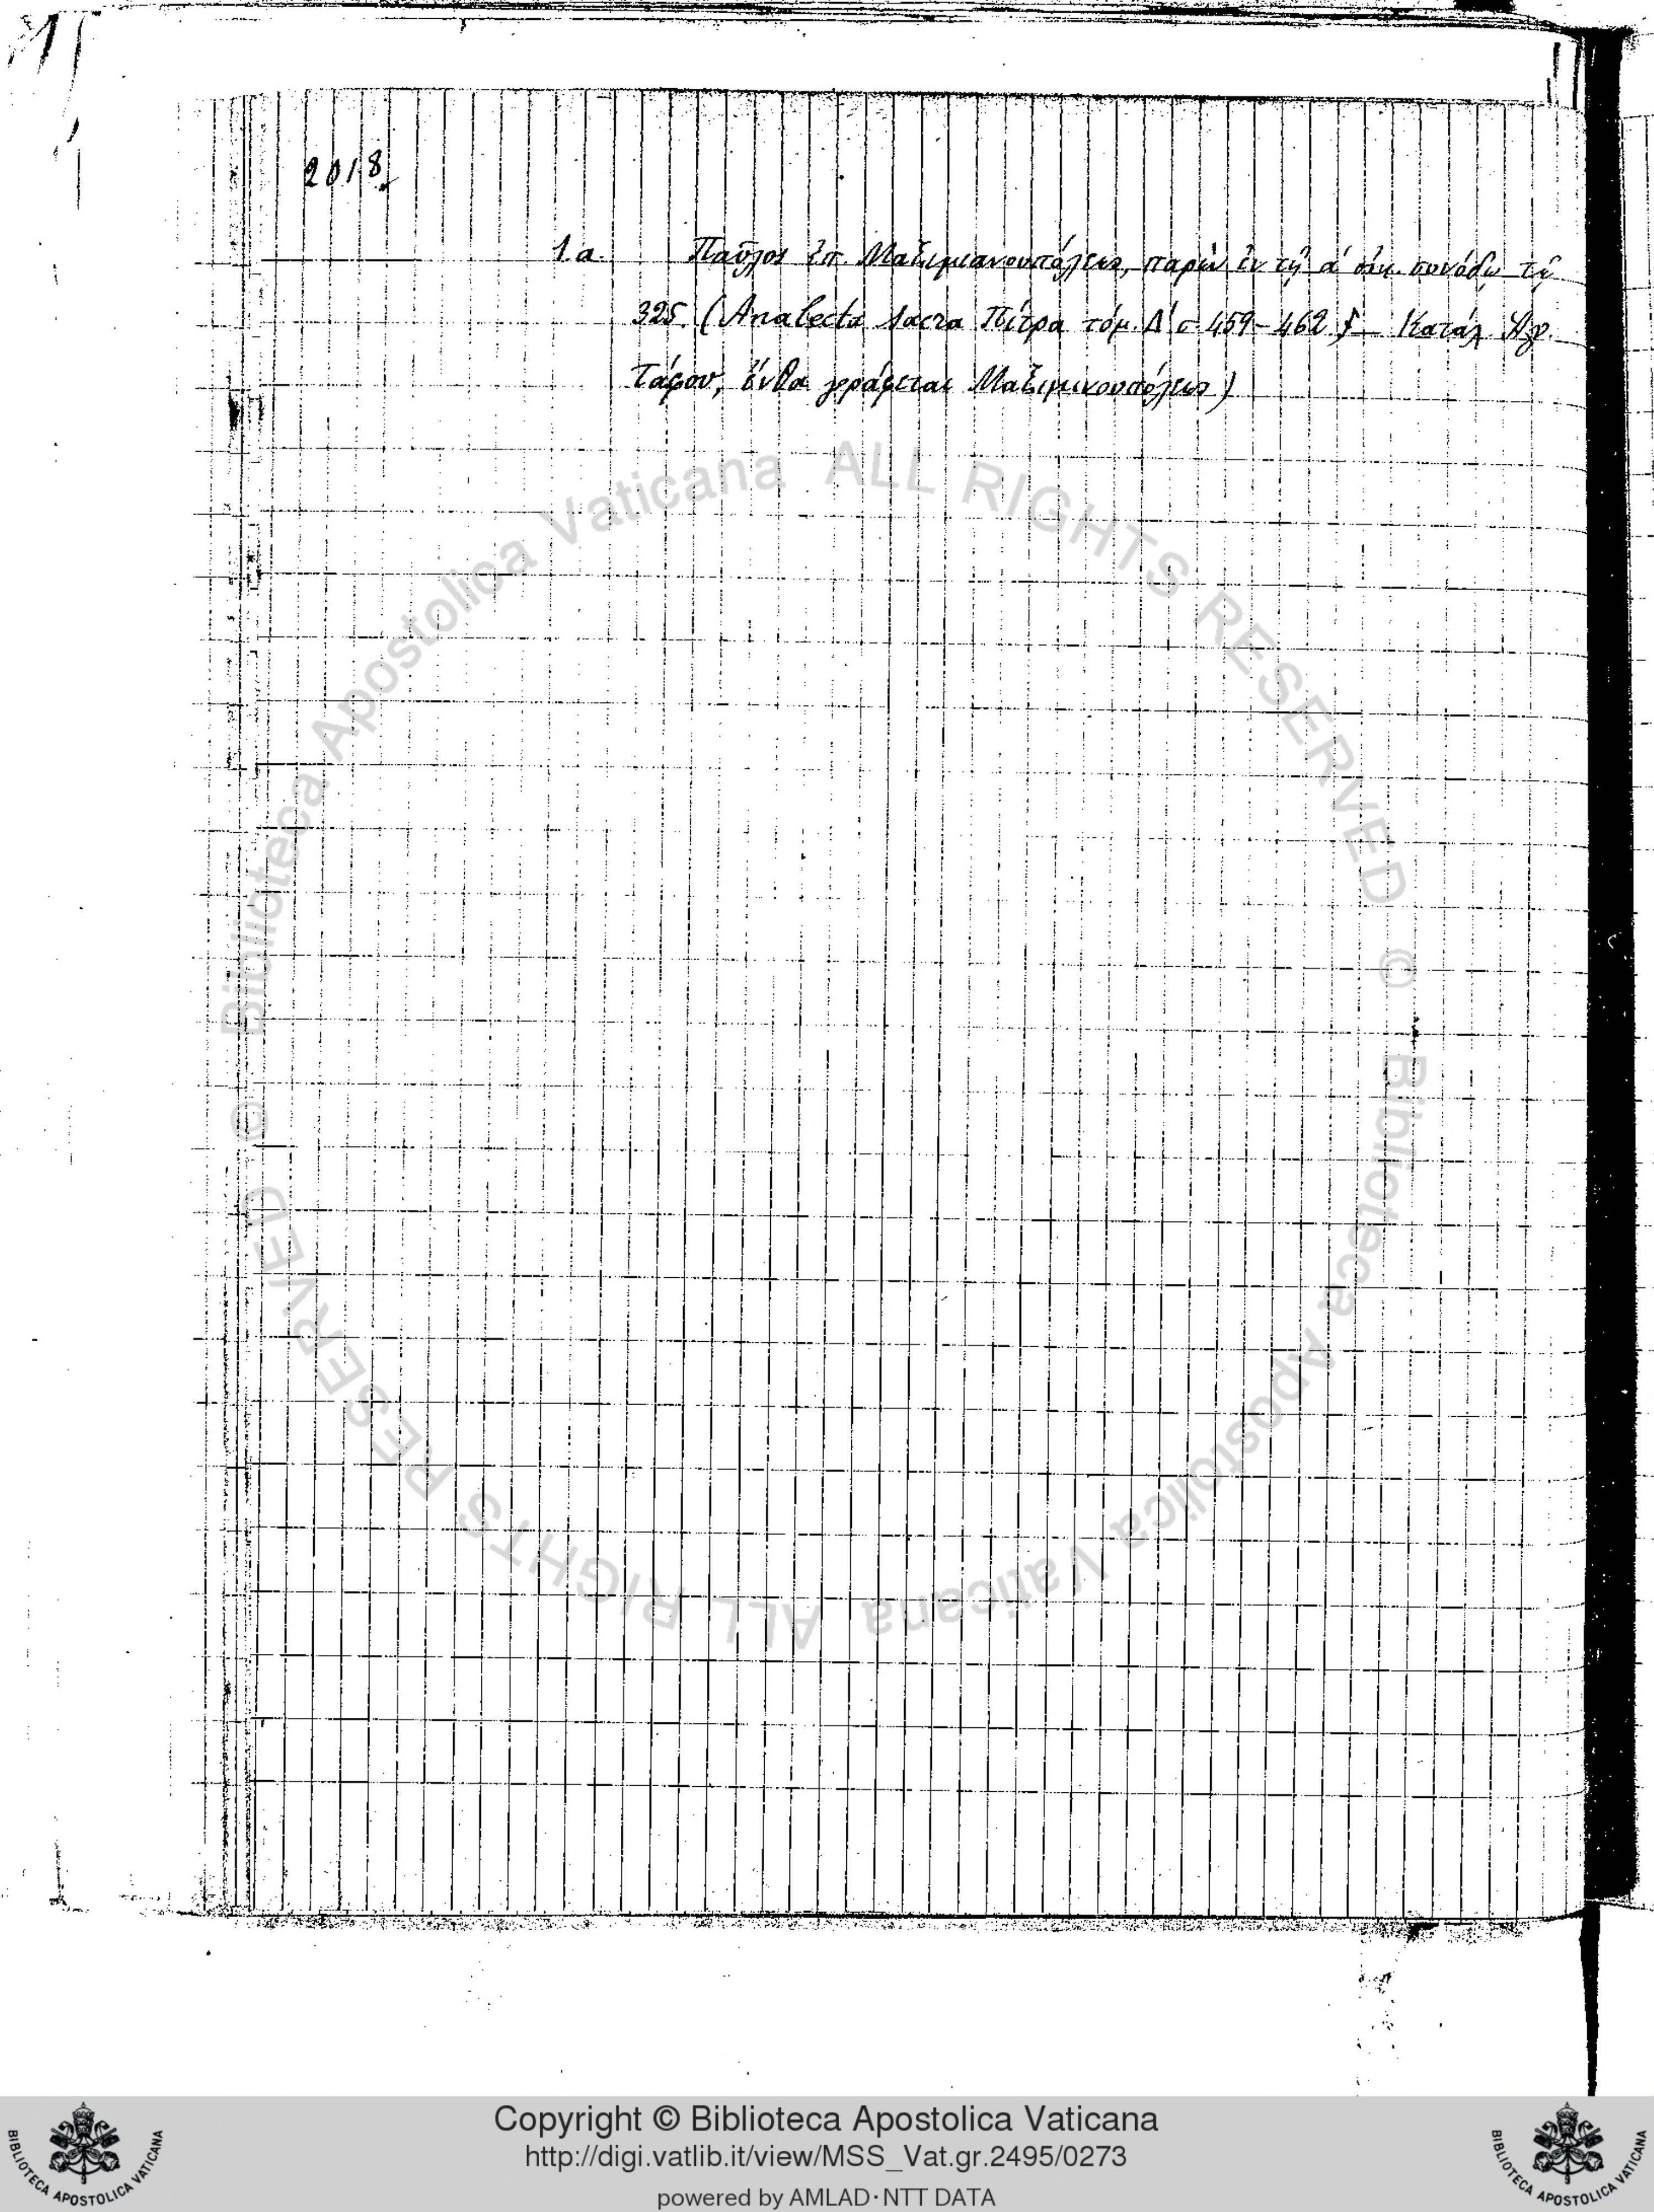 2018
1.α. Παῦλος ἐπ. Μαξιμιανουπόλεως, παρὼν ἐν τῇ α΄ οἰκ. συνόδῳ τῷ
325. (Analecta sacra Πίτρα τόμ. Δ΄ σ. 459-462 — Κατάλ. Ἁγ.
Τάφου, ἔνθα γράφεται Μαξιμινουπόλεως)
© Biblioteca Apostolica Vaticana ALL RIGHTS RESERVED
© Biblioteca Apostolica Vaticana ALL RIGHTS RESERVED
Copyright © Biblioteca Apostolica Vaticana
http://digi.vatlib.it/view/MSS_Vat.gr.2495/0273
powered by AMLAD·NTT DATA
BIBLIOTECA APOSTOLICA VATICANA
BIBLIOTECA APOSTOLICA VATICANA